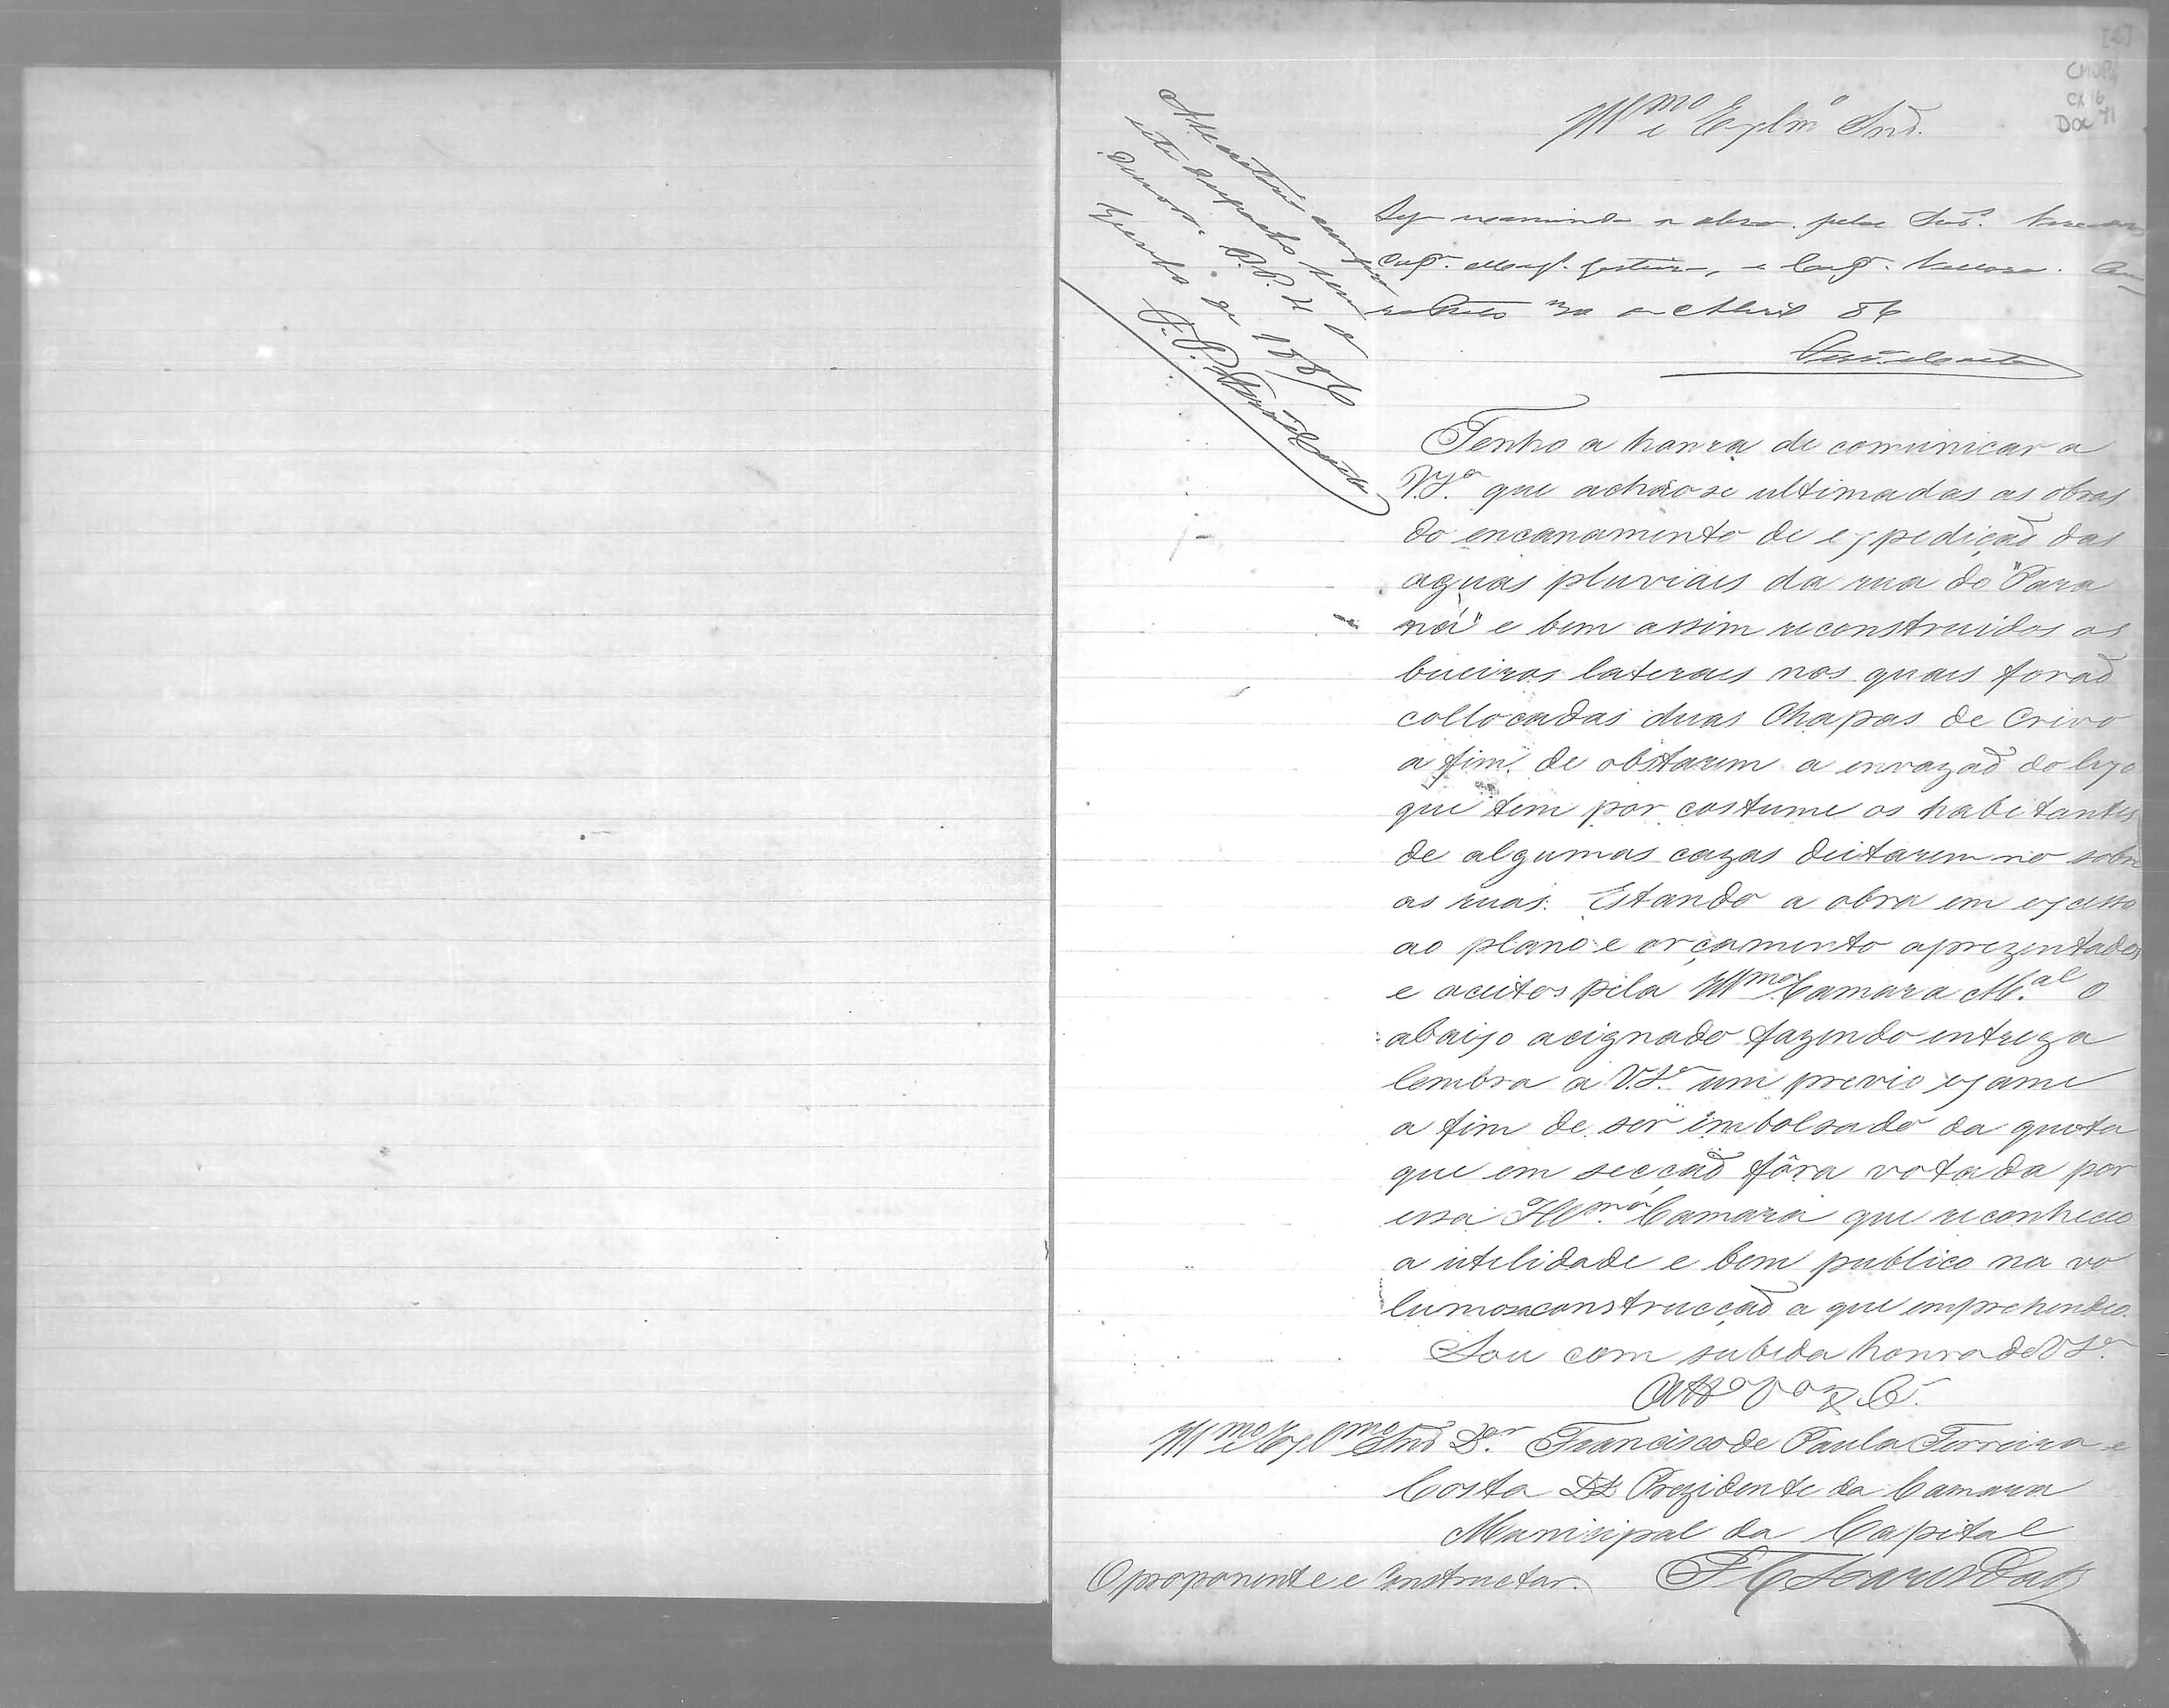 [2]
CMOP
CX 16
DOC 41
Illmo e Exlmo Snr.
Seja examinada a obra pelos Snrs.
30 de Abril 86
de 1886
Tenho a honra de comunicar a
V.Sa. que achãose ultimadas as obras
do encanamento de expedicaõ das
aguas pluviais da rua do "Para
ná" e bem assim reconstruidos os
bueiros laterais nos quais foraõ
collocadas duas Chapas de Crivo
a fim de obstarem a envazaõ do lixo
que tem por costume os habitantes
de algumas cazas deitarem no sobre
as ruas. Estando a obra em excesso
ao plano e orçamento aprezentados
e aceitos pela Illma Camara M.al o
abaixo acignado fazendo entrega
lembra a V.Sa. um previo exame
a fim de ser embolsado da quota
que em secçaõ fôra votada por
essa Illma. Camara que reconheceo
a utelidade e bem publico na vo
lumosa construcçaõ a que emprehendeo.
Sou com subida honra de V Sa.
Atto Vor & Co.
Illmo e Exlmo Snr Dor. Francisco de Paula Ferreira e
Costa DD Prezidente da Camara
Municipal da Capital
O proponente e Constructor. Soares